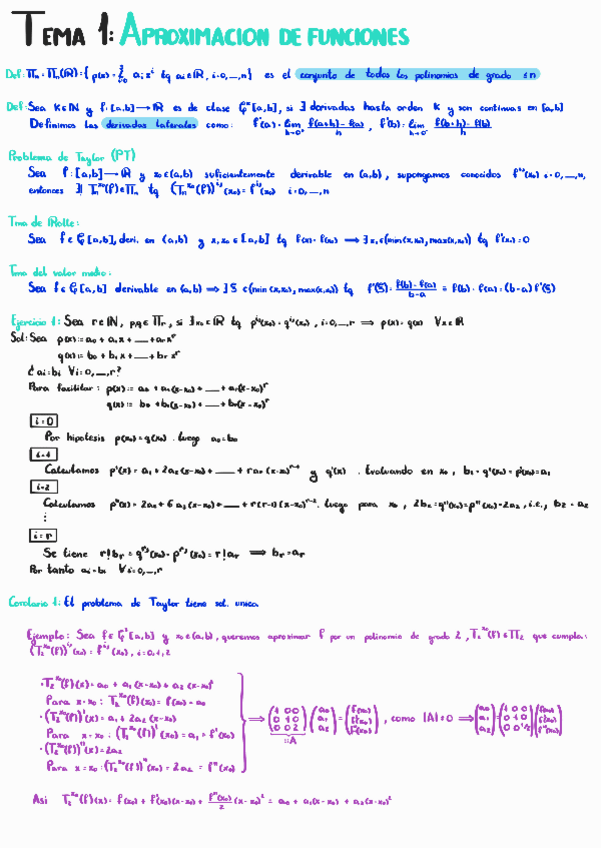 TEMA 1: APROXIMACION DE FUNCIONES
Def: Πₙ = Πₙ(ℝ) = { p(x) = Σ aᵢxⁱ tq aᵢ∈ℝ, i=0,...,n } es el conjunto de todos los polinomios de grado ≤n
Def: Sea k∈ℕ y f:[a,b]→ℝ es de clase Cᵏ[a,b], si ∃ derivadas hasta orden k y son continuas en [a,b]
Definimos las derivadas laterales como: f'(a)= lim h→0⁺ f(a+h)-f(a)/h , f'(b)= lim h→0⁻ f(b+h)-f(b)/h
Problema de Taylor (PT)
Sea f:[a,b]→ℝ y x₀∈(a,b) suficientemente derivable en (a,b), supongamos conocidos f⁽ⁱ⁾(x₀) i=0,...,n,
entonces ∃! Tₙˣ⁰(f)∈Πₙ tq (Tₙˣ⁰(f))⁽ⁱ⁾(x₀)= f⁽ⁱ⁾(x₀) i=0,...,n
Tma de Rolle:
Sea f∈C[a,b], deri. en (a,b) y x,x₀∈[a,b] tq f(x)=f(x₀) ⟹ ∃ x₁∈(min(x,x₀),max(x,x₀)) tq f'(x₁)=0
Tma del valor medio:
Sea f∈C[a,b] derivable en (a,b) ⟹ ∃ ξ∈(min(x,x₀),max(x,x₀)) tq f'(ξ)= f(b)-f(a)/b-a ≡ f(b)-f(a)=(b-a)f'(ξ)
Ejercicio 1: Sea r∈ℕ, p,q∈Πᵣ, si ∃x₀∈ℝ tq p⁽ⁱ⁾(x₀)=q⁽ⁱ⁾(x₀), i=0,...,r ⟹ p(x)=q(x) ∀x∈ℝ
Sol: Sea p(x):= a₀ + a₁x + ... + aᵣxʳ
q(x):= b₀ + b₁x + ... + bᵣxʳ
¿ aᵢ=bᵢ ∀i=0,...,r?
Para facilitar: p(x):= a₀ + a₁(x-x₀) + ... + aᵣ(x-x₀)ʳ
q(x):= b₀ + b₁(x-x₀) + ... + bᵣ(x-x₀)ʳ
i=0
Por hipotesis p(x₀)=q(x₀). luego a₀=b₀
i=1
Calculamos p'(x)= a₁ + 2a₂(x-x₀) + ... + raᵣ(x-x₀)ʳ⁻¹ y q'(x). Evaluando en x₀, b₁=q'(x₀)=p'(x₀)=a₁
i=2
Calculamos p''(x)= 2a₂+6a₃(x-x₀)+ ... + r(r-1)(x-x₀)ʳ⁻². luego para x₀, 2b₂=q''(x₀)=p''(x₀)=2a₂, i.e., b₂=a₂
⋮
i=r
Se tiene r!bᵣ = q⁽ʳ⁾(x₀)=p⁽ʳ⁾(x₀)=r!aᵣ ⟹ bᵣ=aᵣ
Por tanto aᵢ=bᵢ ∀i=0,...,r
Corolario 1: El problema de Taylor tiene sol. unica
Ejemplo: Sea f∈C²[a,b] y x₀∈(a,b), queremos aproximar f por un polinomio de grado 2, T₂ˣ⁰(f)∈Π₂ que cumpla:
(T₂ˣ⁰(f))⁽ⁱ⁾(x₀)= f⁽ⁱ⁾(x₀), i=0,1,2
·T₂ˣ⁰(f)(x)= a₀ + a₁(x-x₀)+ a₂(x-x₀)²
Para x=x₀: T₂ˣ⁰(f)(x₀)= f(x₀)=a₀
·(T₂ˣ⁰(f))'(x)= a₁+2a₂(x-x₀)
Para x=x₀: (T₂ˣ⁰(f))'(x₀)=a₁=f'(x₀)
·(T₂ˣ⁰(f))''(x)=2a₂
Para x=x₀: (T₂ˣ⁰(f))''(x₀)=2a₂=f''(x₀)
⟹ (1 0 0 / 0 1 0 / 0 0 2) (a₀ / a₁ / a₂) = (f(x₀) / f'(x₀) / f''(x₀)), como |A|≠0 ⟹ (a₀ / a₁ / a₂) = (1 0 0 / 0 1 0 / 0 0 1/2) (f(x₀) / f'(x₀) / f''(x₀))
:=A
Asi T₂ˣ⁰(f)(x)= f(x₀)+f'(x₀)(x-x₀)+ f''(x₀)/2 (x-x₀)² = a₀ + a₁(x-x₀) + a₂(x-x₀)²